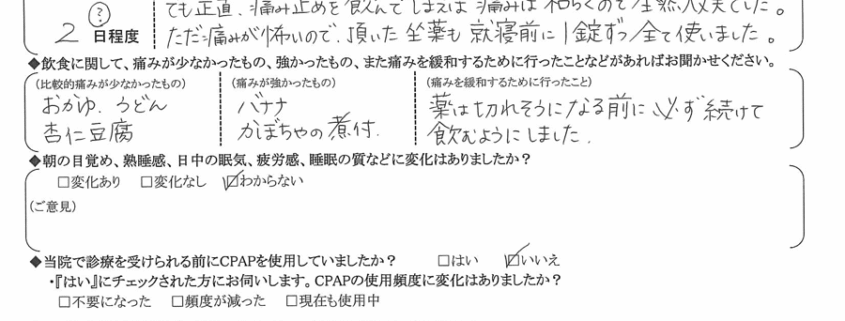 ? ても正直、痛み止めを飲んでしまえば痛みは和らぐので全然大丈夫でした。
2 日程度 ただ痛みが怖いので、頂いた坐薬も就寝前に1錠ずつ全て使いました。
◆飲食に関して、痛みが少なかったもの、強かったもの、また痛みを緩和するために行ったことなどがあればお聞かせください。
(比較的痛みが少なかったもの) (痛みが強かったもの) (痛みを緩和するために行ったこと)
おかゆ、うどん バナナ 薬は切れそうになる前に必ず続けて
杏仁豆腐 かぼちゃの煮付. 飲むようにしました.
◆朝の目覚め、熟睡感、日中の眠気、疲労感、睡眠の質などに変化はありましたか?
□変化あり □変化なし ☑わからない
(ご意見)
◆当院で診療を受けられる前にCPAPを使用していましたか? □はい ☑いいえ
・『はい』にチェックされた方にお伺いします。CPAPの使用頻度に変化はありましたか?
□不要になった □頻度が減った □現在も使用中